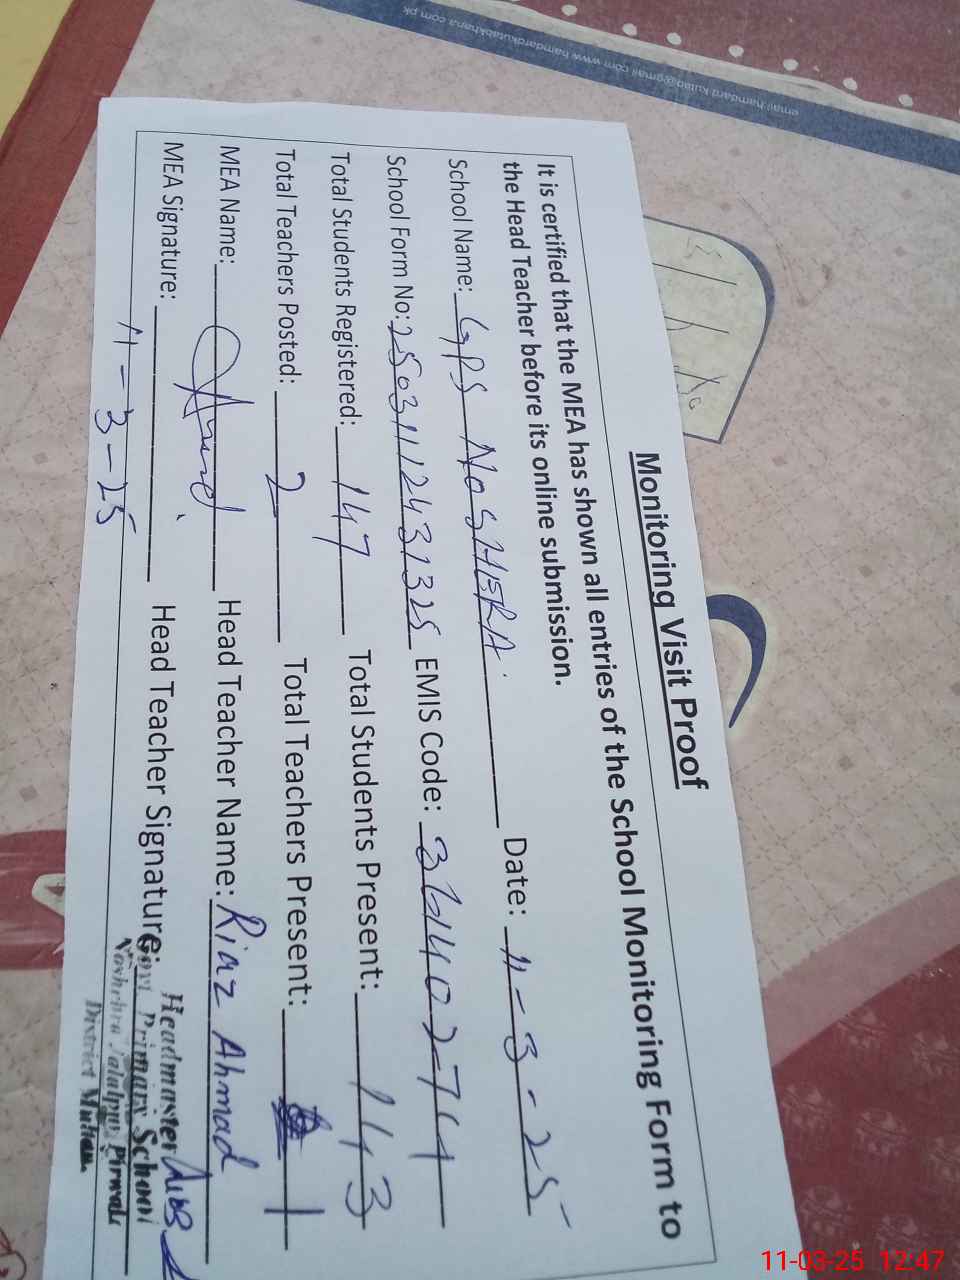 Monitoring Visit Proof
It is certified that the MEA has shown all entries of the School Monitoring Form to
the Head Teacher before its online submission.
School Name: GPS NOSHERA. Date: 11-3-25
School Form No: 25031112431325 EMIS Code:
Total Students Registered: 147 Total Students Present: 143
Total Teachers Posted: 2 Total Teachers Present: 1
MEA Name: Head Teacher Name: Riaz Ahmad
MEA Signature: Head Teacher Signature:
11-3-25
Headmaster
Govt Primary School
Noshehra Jalalpur Pirwala
District Multan.
11-03-25 12:47